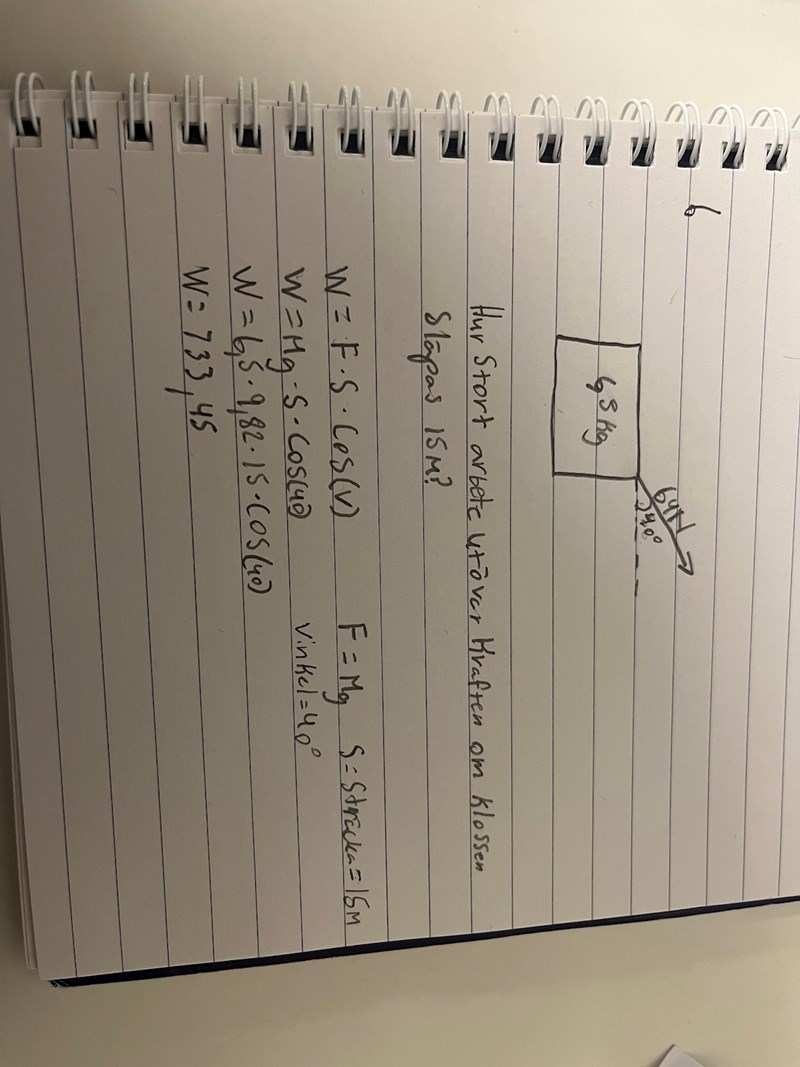 6
64N
40°
6,5 kg
Hur Stort arbete utövar Kraften om Klossen
Släpas 15M?
W = F · S · Cos(v) F = Mg S = Sträcka = 15M
W = Mg · S · Cos(40) Vinkel = 40°
W = 6,5 · 9,82 · 15 · COS(40)
W = 733,45